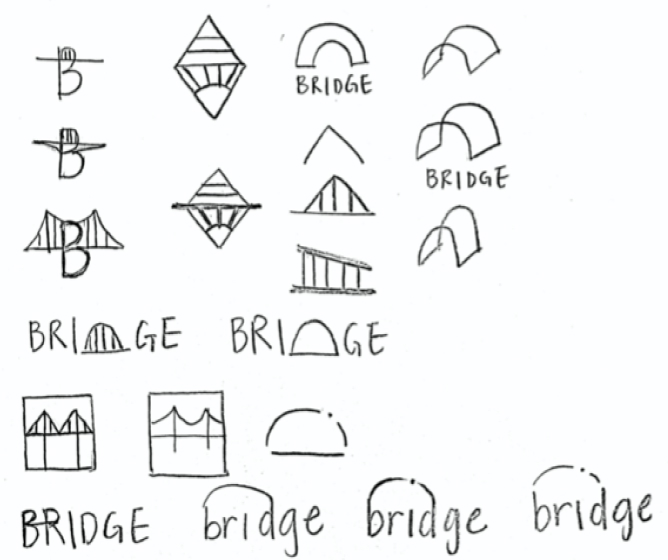 B
BRIDGE
B
BRIDGE
B
BRIDGE BRIDGE
BRIDGE bridge bridge bridge